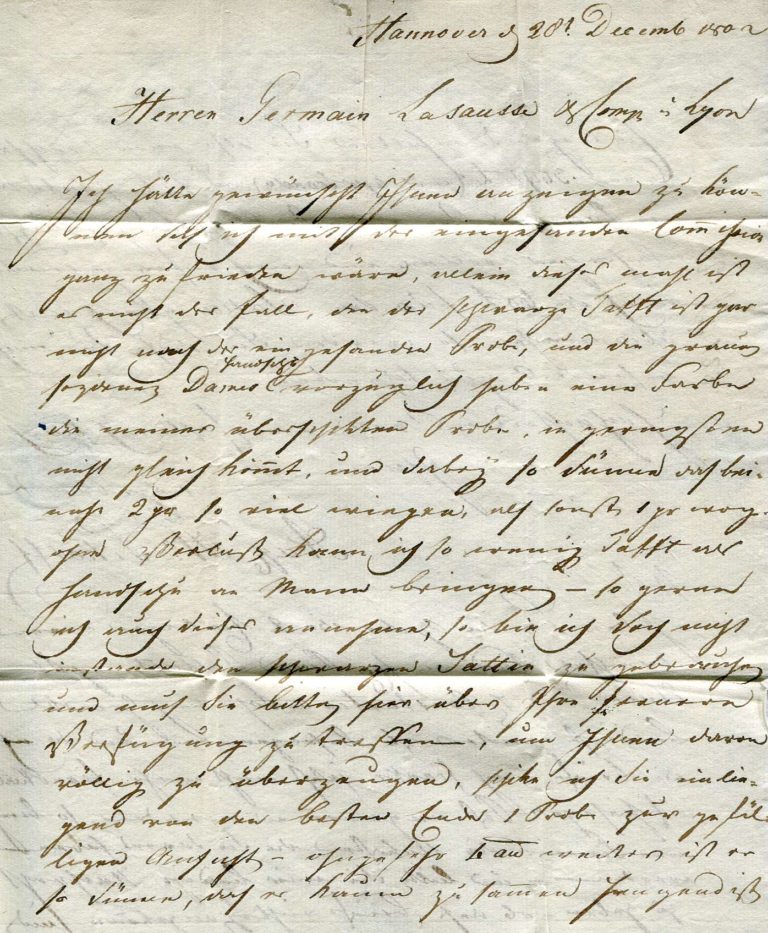 Hannover d 28t Decemb 1802
Herren Germain Lasausse & Comp à Lyon
Ich hätte gewünscht Ihnen anzeigen zu kön-
nen daß ich mit der eingesanden Commission
ganz zufrieden wäre, allein dieses mahl ist
es nicht der fall, den der schwarze Tafft ist gar
nicht nach der ein gesanden Probe, und die grauen
seidenen Dames handschu vorzüglich haben eine Farbe
die meiner überschikten Probe, im geringsten
nicht gleich kömmt, und dabeÿ so dünne das bei-
nahe 2 pr so viel wiegen, als sonst 1 pr wog.
ohne Verlust kann ich so wenig Tafft als
handschu an Mann bringen – so gerne
ich auch dieses annehme, so bin ich doch nicht
imstande den schwarzen Sattin zu gebrauchen
und muß Sie bitten hier über Ihre fernere
Verfügung zu treffen, um Ihnen davon
völlig zu überzeugen, schike ich Sie einlie-
gend von den besten Ende 1 Probe zur gefäl-
ligen Ansicht – ohngefehr weiter ist er
so dünne, das er kaum zu sammen hengend ist